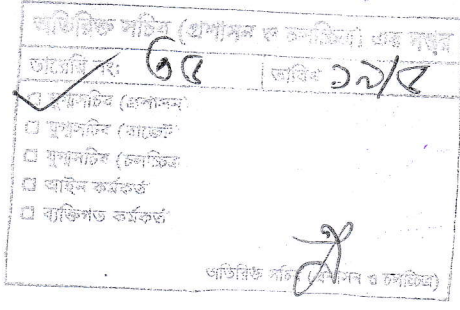 অতিরিক্ত সচিব (প্রশাসন ও চলচ্চিত্র) এর দপ্তর
ডায়েরি নং: ৬৫ তারিখ ১৯/৫
☐ যুগ্মসচিব (প্রশাসন)
☐ যুগ্মসচিব (বাজেট)
☐ যুগ্মসচিব (চলচ্চিত্র
☐ আইন কর্মকর্তা
☐ ব্যক্তিগত কর্মকর্তা
অতিরিক্ত সচিব (প্রশাসন ও চলচ্চিত্র)